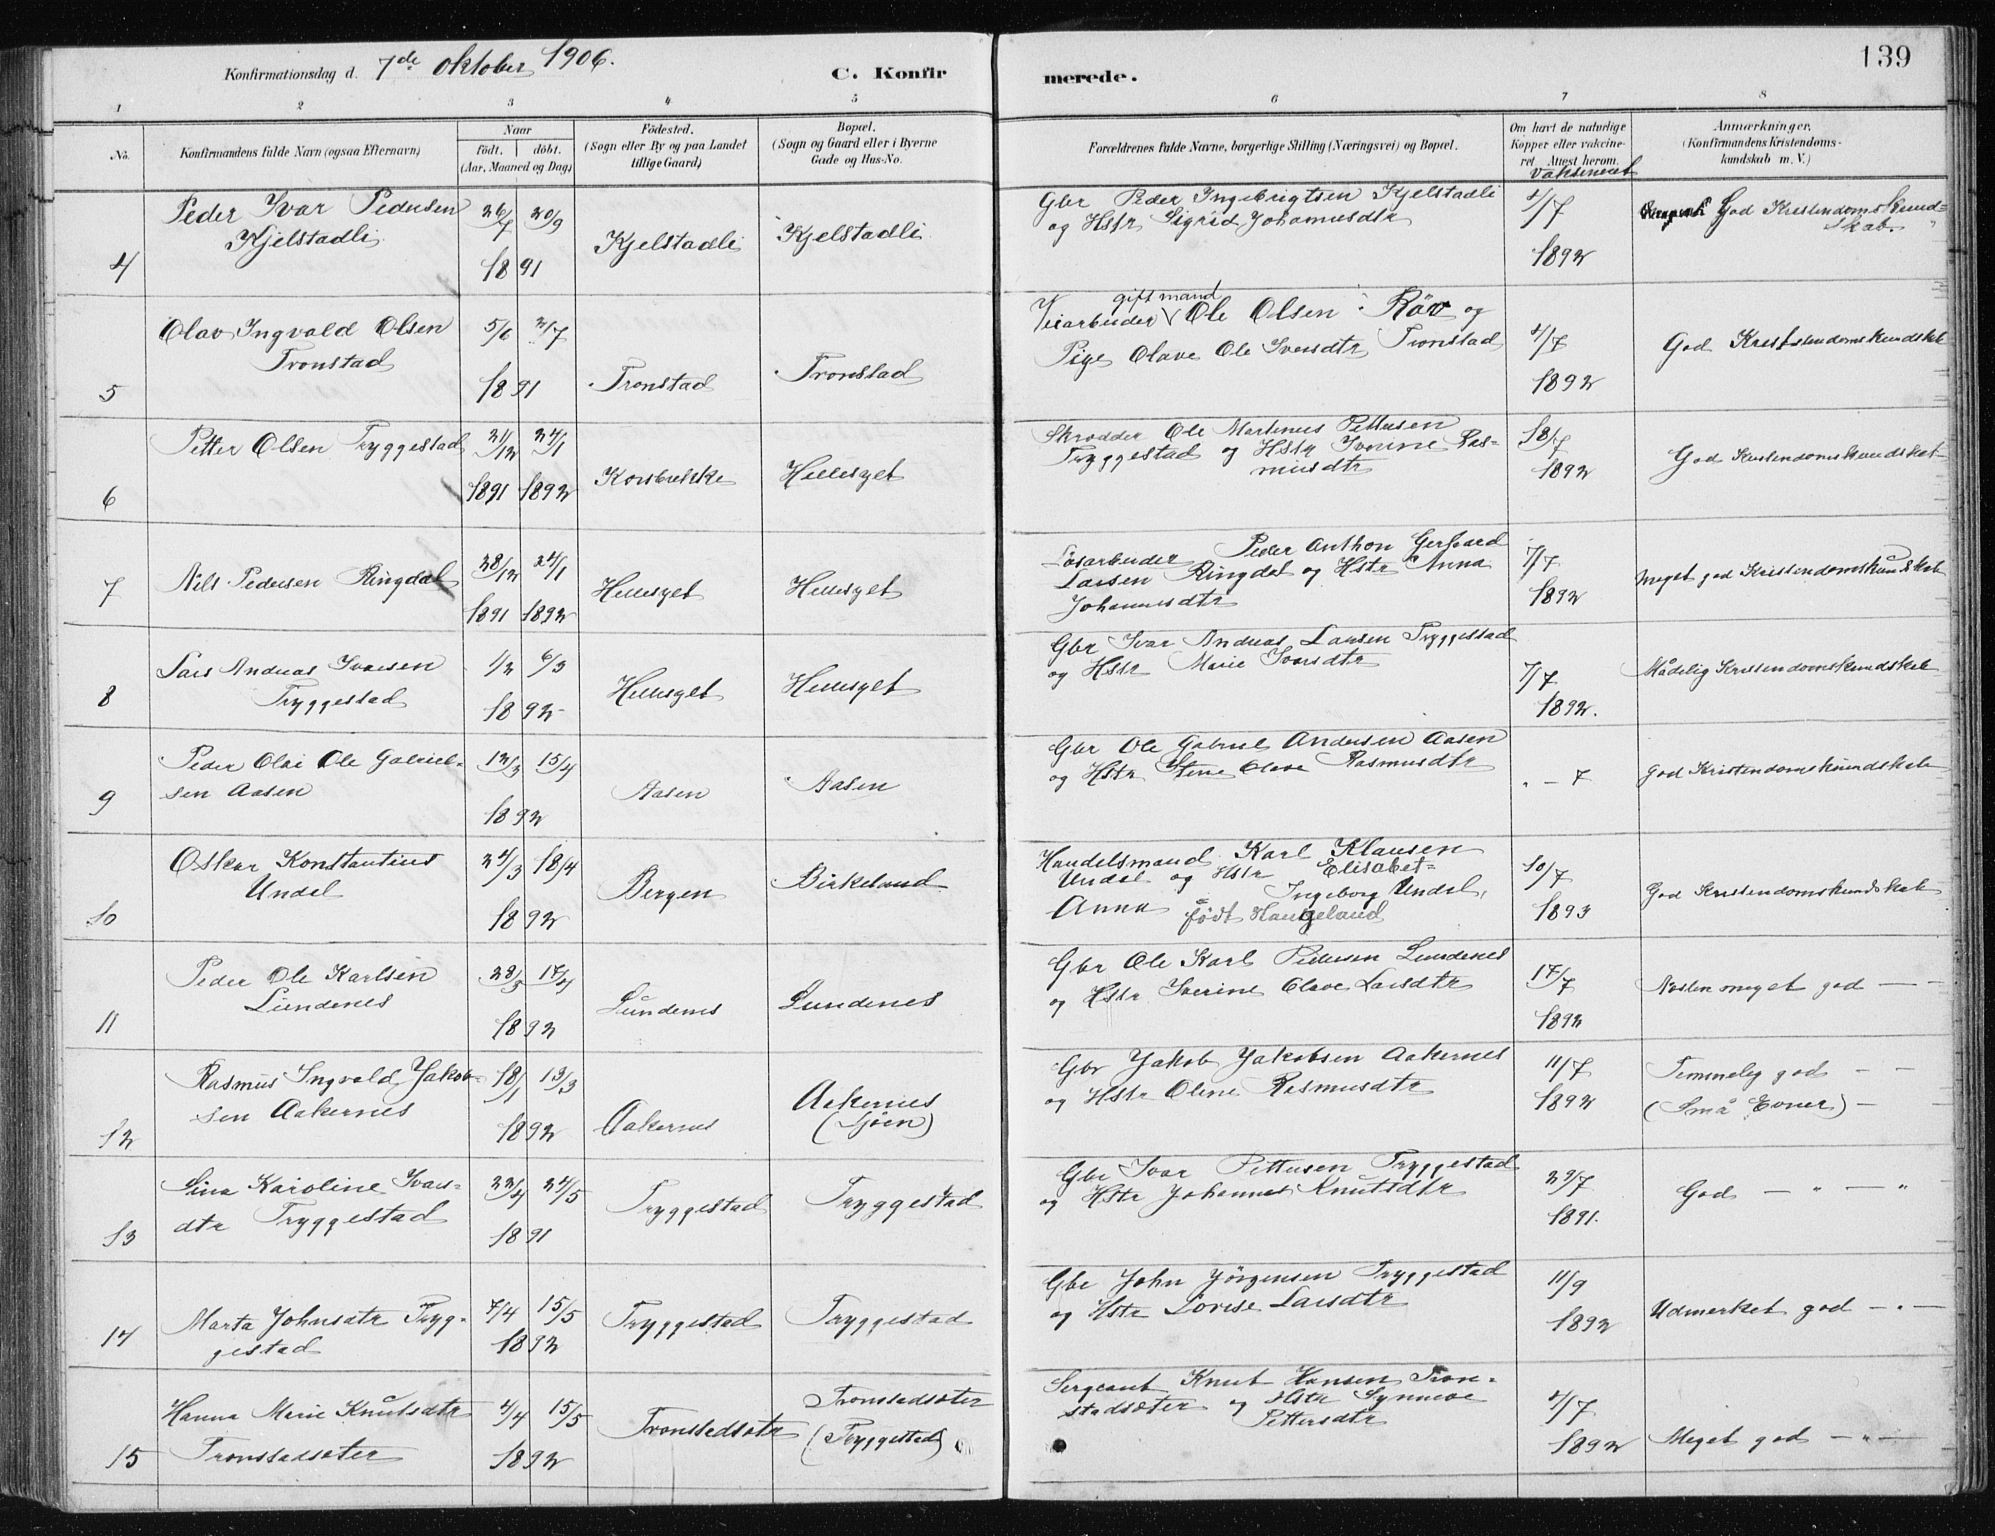 139
Konfirmationsdag d. 7de oktober 1906.
C. Konfirmerede.
1 2 3 4 5 6 7 8
No. Konfirmandens fulde Navn (ogsaa Efternavn) Naar födt. döbt. (Aar, Maaned og Dag) Födested. (Sogn eller By og paa Landet tillige Gaard) Bopæl. (Sogn og Gaard eller i Byerne Gade og Hus-No. Forældrenes fulde Navne, borgerlige Stilling (Næringsvei) og Bopæl. Om havt de naturlige Kopper eller vakcineret. Attest herom. Vaksineret Anmærkninger. (Konfirmandens Kristendomskundskab m. V.)
4 Peder Ivar Pedersen Kjelstadli 26/7 20/9 1891 Kjelstadli Kjelstadli Gbr Peder Ingebrigtsen Kjelstadli
og Hstr Sigrid Johannesdtr 4/7 1892 God Kristendomskundskab.
5 Olav Ingvald Olsen Tronstad 5/6 2/7 1891 Tronstad Tronstad Veiarbeider gift mand Ole Olsen Röv og
Pige Olave Ole Iversdtr Tronstad 4/7 1892 God Kristendomskundskab
6 Petter Olsen Tryggestad 21/12 1891 24/1 1892 Korsbrekke Hellesylt Skrædder Ole Martinus Pettersen
Tryggestad og Hstr Ivarine Rasmusdtr 18/7 1892 God Kristendomskundskab
7 Nils Pedersen Ringdal 28/12 1891 24/1 1892 Hellesylt Hellesylt Lösarbeider Peder Anthon Gerhard
Larsen Ringdal og Hstr Anna
Johannesdtr 7/7 1892 Meget god Kristendomskundskab
8 Lars Andreas Ivarsen Tryggestad 1/2 6/3 1892 Hellesylt Hellesylt Gbr Ivar Andreas Larsen Tryggestad
og Hstr Marie Ivarsdtr 7/7 1892. Mådelig Kristendomskundskab
9 Peder Olai Ole Gabrielsen Aasen 12/3 15/4 1892 Aasen Aasen Gbr Ole Gabriel Andersen Aasen
og Hstr Stine Olave Rasmusdtr " – 7 God Kristendomskundskab
10 Oskar Konstantius Undal 24/3 18/4 1892 Bergen Birkeland Handelsmand Karl Klausen
Undal og Hstr Elisabet
Anna Ingeborg Undal,
födt Haugeland 10/7 1893 God Kristendomskundskab
11 Peder Ole Karlsen Lundenes 28/3 17/4 1892 Lundenes Lundenes Gbr Ole Karl Pedersen Lundenes
og Hstr Iverine Olave Larsdtr 17/7 1892 Næsten meget god — —
12 Rasmus Ingvald Jakobsen Aakernes 18/1 13/3 1892 Aakernes Aakernes
(Sjöen) Gbr Jakob Jakobsen Aakernes
og Hstr Oline Rasmusdtr 11/7 1892 Temmelig god — —
(Små Evner) —
13 Lina Karoline Ivarsdtr Tryggestad 22/4 24/5 1891 Tryggestad Tryggestad Gbr Ivar Pettersen Tryggestad
og Hstr Johanne Knutsdtr 29/7 1891. God — " — "
14 Marta Johnsdtr Tryggestad 7/4 15/5 1892 Tryggestad Tryggestad Gbr John Jörgensen Tryggestad
og Hstr Lovise Larsdtr 11/9 1892 Udmerket god — " —
15 Hanna Marie Knutsdtr Tronstadsæter 4/4 15/5 1892 Tronstadsætr Tronstadsæter
(Tryggestad) Sergeant Knut Hansen Tronstadsæter og Hstr Synneve
Pettersdtr 4/7 1892 Meget god — " —